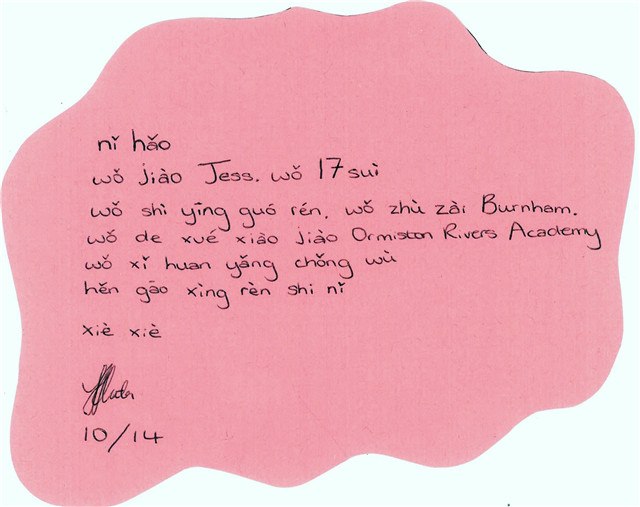 nǐ hǎo
wǒ jiào Jess. wǒ 17 suì
wǒ shì yīng guó rén. wǒ zhù zài Burnham.
wǒ de xué xiào jiào Ormiston Rivers Academy
wǒ xǐ huan yǎng chǒng wù
hěn gāo xìng rèn shi nǐ
xiè xiè
10/14